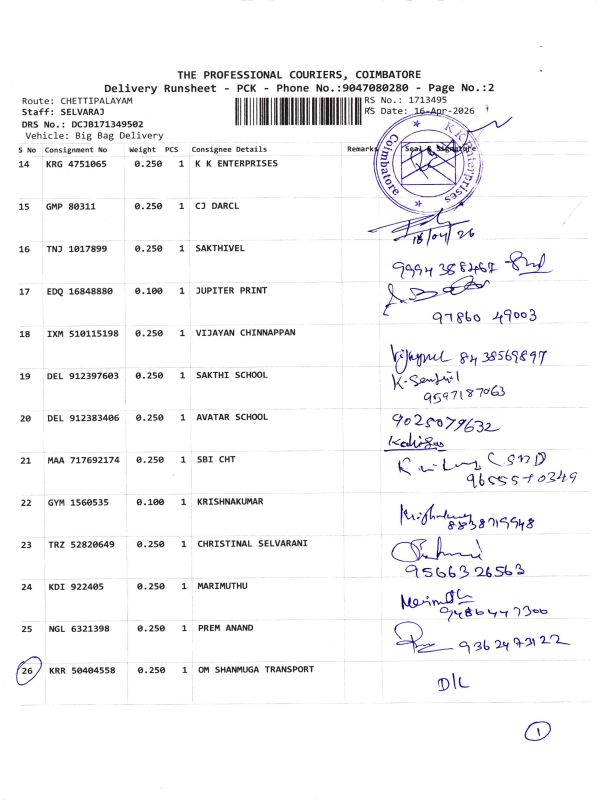 THE PROFESSIONAL COURIERS, COIMBATORE
Delivery Runsheet - PCK - Phone No.:9047080280 - Page No.:2
Route: CHETTIPALAYAM
RS No.: 1713495
Staff: SELVARAJ
RS Date: 16-Apr-2026
DRS No.: DCJB171349502
Vehicle: Big Bag Delivery
S No Consignment No Weight PCS Consignee Details Remarks Seal & Signature
K K Enterprises
Coimbatore
14 KRG 4751065 0.250 1 K K ENTERPRISES
15 GMP 80311 0.250 1 CJ DARCL
18/04/26
16 TNJ 1017899 0.250 1 SAKTHIVEL
9994388467
17 EDQ 16848880 0.100 1 JUPITER PRINT
97860 49003
18 IXM 510115198 0.250 1 VIJAYAN CHINNAPPAN
8438569897
19 DEL 912397603 0.250 1 SAKTHI SCHOOL
K-Senthil
9597187063
20 DEL 912383406 0.250 1 AVATAR SCHOOL
9025079632
21 MAA 717692174 0.250 1 SBI CHT
22 GYM 1560535 0.100 1 KRISHNAKUMAR
8838719948
23 TRZ 52820649 0.250 1 CHRISTINAL SELVARANI
9566326563
24 KDI 922405 0.250 1 MARIMUTHU
Marimuthu
9486447300
25 NGL 6321398 0.250 1 PREM ANAND
9362473122
26 KRR 50404558 0.250 1 OM SHANMUGA TRANSPORT
D/L
1